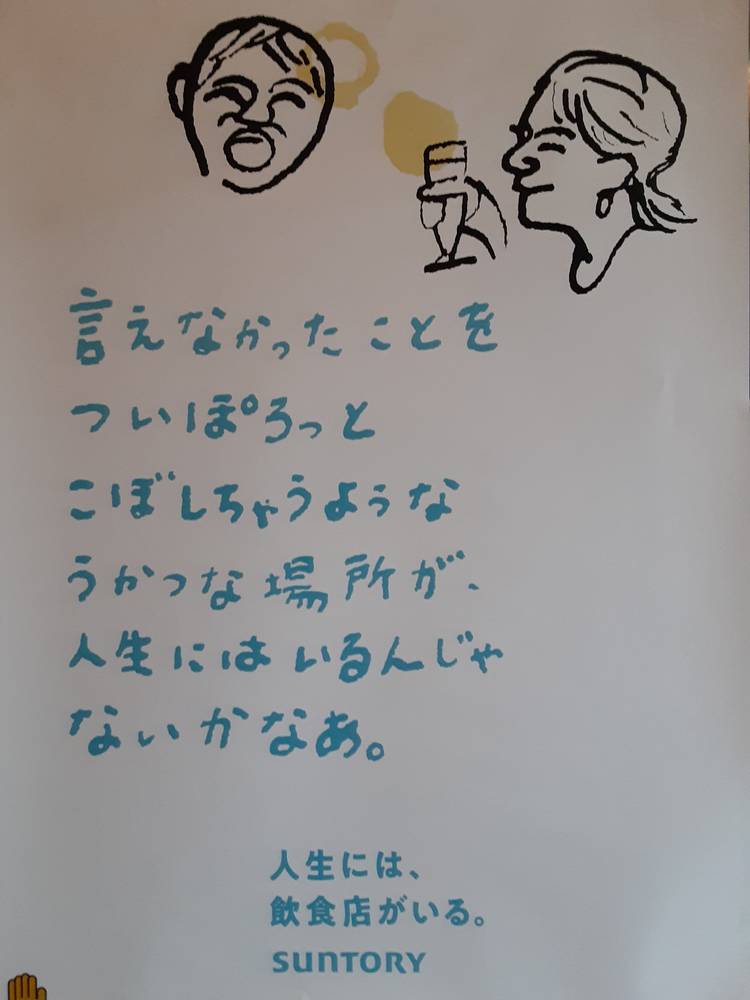 言えなかったことを
ついぽろっと
こぼしちゃうような
うかつな場所が、
人生にはいるんじゃ
ないかなあ。
人生には、
飲食店がいる。
SUNTORY